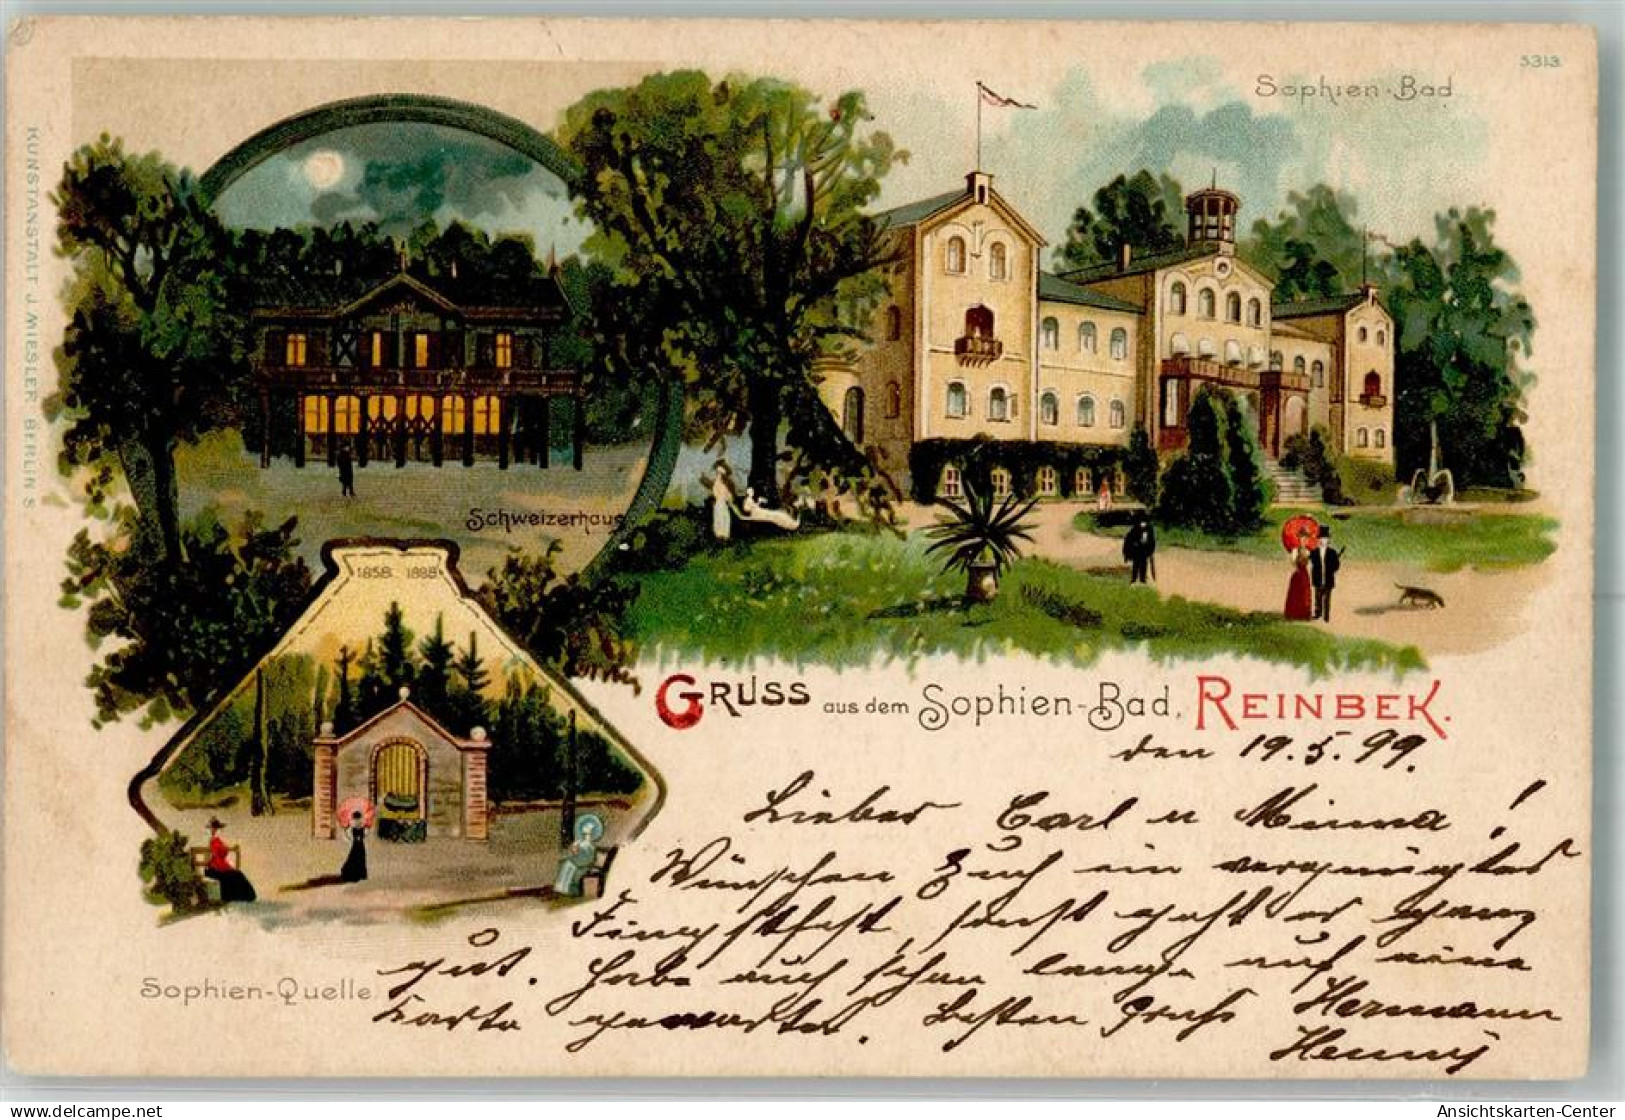 5313
Sophien-Bad
KUNSTANSTALT J. MIESLER, BERLIN S
Schweizerhaus
1858 1888
GRUSS aus dem Sophien-Bad, REINBEK.
den 19.5.99.
Lieber Carl u Minna!
Wünschen Euch ein vergnügtes
Fingstfest, sonst geht es ganz
gut. Habe auch schon lange auf eine
Sophien-Quelle
Karte gewartet. Besten Gruß Hermann
Henny
www.delcampe.net
Ansichtskarten-Center